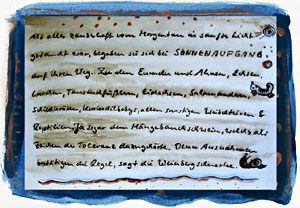 Als alle Landschaft vom Morgentau in sanftes Licht
getaucht war, begaben sie sich bei SONNENAUFGANG
auf ihren Weg. Zu den Emuden und Ahnen, Echsen,
Tausendfüßlern, Eidechsen, Salamandern,
allen sonstigen
Ja sogar dem Hängebauchschwein, welches als
Zeichen der Toleranz dazugehörte. Denn Ausnahmen
bestätigen die Regel, sagt die Weinbergschnecke.